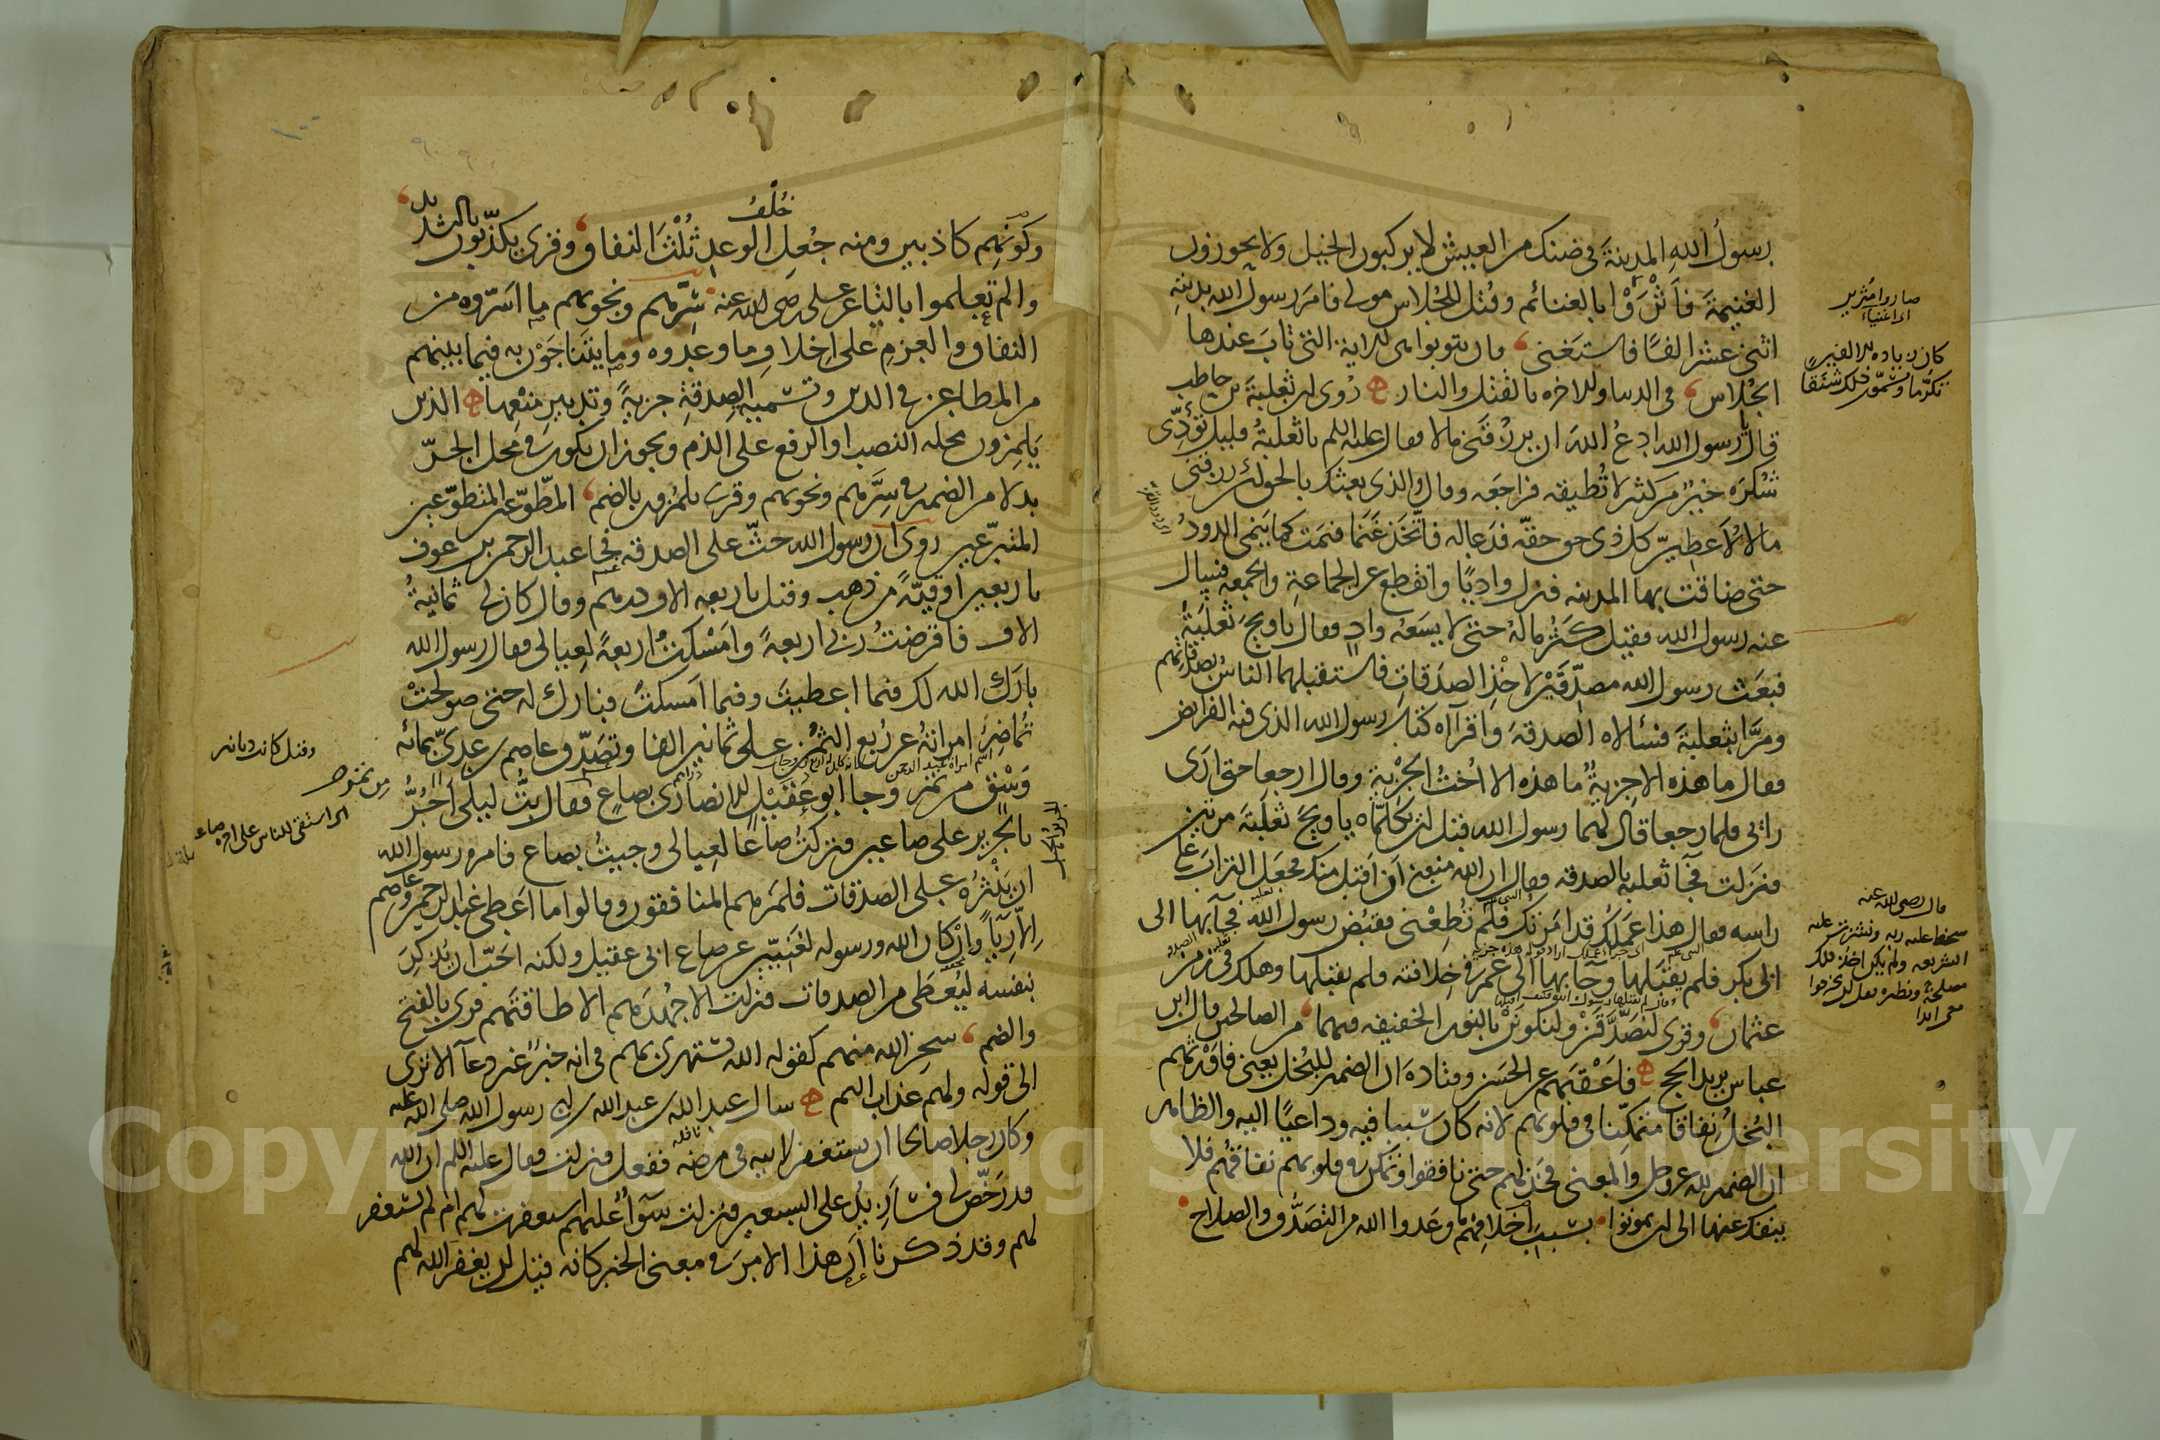 رسول الله المدينة في ضنك من العيش لا يركبون الخيل ولا يحوزون
الغنيمة فأثروا بالغنائم وقتل للجلاس مولى فامر رسول الله بديته
اثنى عشر الفا فاستغنى فان يتوبوا هي الاية التى تاب عندها
الجلاس في الدنيا والاخره بالقتل والنار روى ان ثعلبة بن حاطب
قال يا رسول الله ادع الله ان يرزقنى مالا فقال عليه السلم يا ثعلبة قليل تؤدى
شكره خير من كثير لا تطيقه فراجعه وقال والذى بعثك بالحق لئن رزقنى
مالا لاعطين كل ذى حق حقه فدعا له فاتخذ غنما فنمت كما ينمى الدود
حتى ضاقت بها المدينه فنزل واديا وانقطع عن الجماعة والجمعه فسال
عنه رسول الله فقيل كثر ماله حتى لا يسعه واد فقال يا ويح ثعلبة
فبعث رسول الله مصدقين لاخذ الصدقات فاستقبلهما الناس بصدقاتهم
ومرا بثعلبة فسألاه الصدقة واقرآه كتاب رسول الله الذى فيه الفرايض
فقال ما هذه الا جزية ما هذه الا اخت الجزية وقال ارجعا حتى ارى
رايى فلما رجعا قال لهما رسول الله قبل ان يكلماه يا ويح ثعلبة مرتين
فنزلت فجآ ثعلبة بالصدقه فقال ان الله منعنى ان اقبل منك فجعل التراب على
راسه فقال هذا عملك قد امرتك فلم تطعنى فقبض رسول الله فجآ بها الى
ابى بكر فلم يقبلها وجآ بها الى عمر في خلافته فلم يقبلها وهلك في زمن
عثمان وقرى لنصدقن ولنكونن بالنون الخفيفه فيهما من الصالحين قال ابن
عباس يريد الحج فاعقبهم عن الحسن وقتادة ان الضمير للبخل يعنى فاورثهم
البخل نفاقا متمكنا في قلوبهم لانه كان سببا فيه وداعيا اليه والظاهر
ان الضمير لله عز وجل والمعنى فخذلهم حتى نافقوا وتمكن في قلوبهم نفاقهم فلا
ينفك عنها الى ان يموتوا بسبب اخلافهم ما وعدوا الله من التصدق والصلاح
صاروا مثرين
اى اغنياء
كان زياده للالفين
تكرما ويسمون ذلك شنقا
قال رضى الله عنه
سخط عليه ربه
الشريعه ولم يكن اخذ ذلك
وكونهم كاذبين ومنه جعل خلف الوعد ثلث النفاق وقرى يكذبون بالتشديد
والم تعلموا بالتا عن على رضى الله عنه سرهم ونجويهم ما اسروه من
النفاق والعزم على اخلاف ما وعدوه وما يتناجون به فيما بينهم
من المطاعن في الدين وتسمية الصدقة جزية وتدبير منعها الذين
يلمزون محله النصب او الرفع على الذم ويجوز ان يكون في محل الجر
بدلا من الضمير في سرهم ونجويهم وقرى يلمزون بالضم المطوعين المتطوعين
المتبرعين روى ان رسول الله حث على الصدقه فجا عبد الرحمن بن عوف
باربعين اوقية من ذهب وقيل باربعه الاف درهم وقال كان لى ثمانية
الاف فاقرضت ربى اربعة وامسكت اربعة لعيالى فقال رسول الله
بارك الله لك فيما اعطيت وفيما امسكت فبارك له حتى صولحت
تماضر امراته عن ربع الثمن على ثمانين الفا وتصدق عاصم بن عدى بمائه
وسق من تمر وجا ابو عقيل الانصارى بصاع فقال بت ليلى اجر
بالجرير على صاعين فتركت صاعا لعيالى وجيت بصاع فامره رسول الله
ان ينثره على الصدقات فلمزهم المنافقون وقالوا ما اعطى عبد الرحمن وعاصم
الا رياء وان كان الله ورسوله لغنيين عن صاع ابى عقيل ولكنه احب ان يذكر
بنفسه ليعطى من الصدقات فنزلت الا جهدهم الا طاقتهم قرى بالفتح
والضم سخر الله منهم كقوله الله يستهزئ بهم في انه خبر غير دعآ الا ترى
الى قوله ولهم عذاب اليم سال عبد الله بن عبد الله بن ابى رسول الله صلى الله عليه
وكان رجلا صالحا ان يستغفر لابيه في مرضه ففعل فنزلت فقال عليه السلم ان الله
قد رخص لى فسازيد على السبعين فنزلت سوآ عليهم استغفرت لهم ام لم تستغفر
لهم وقد ذكرنا ان هذا الامر في معنى الخبر كانه قيل لن يغفر الله لهم
وقيل كانت دنانير
اى استقى للناس على اجر صاع